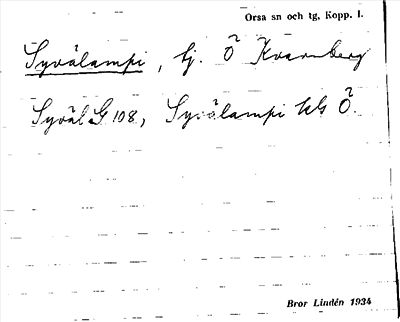 Orsa sn och tg, Kopp. l.
Syvälampi, tj. Ö Kvarnberg
Syväl G 108, Syvälampi kG Ö.
Bror Lindén 1934